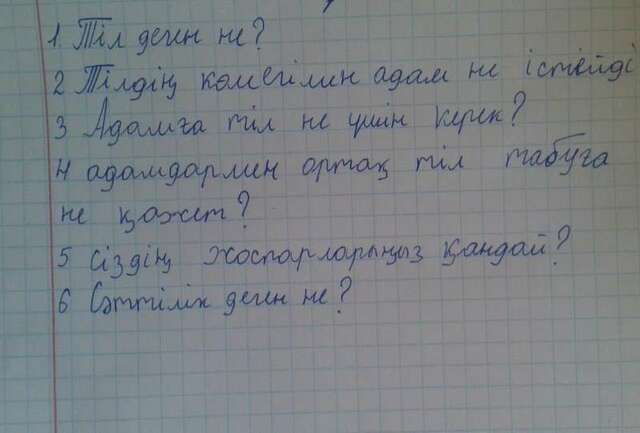 1. Тіл деген не?
2 Тілдің көмегімен адам не істейді
3 Адамға тіл не үшін керек?
4 адамдармен ортақ тіл табуға
не қажет?
5 сіздің жоспарларыңыз қандай?
6 Сәттілік деген не?